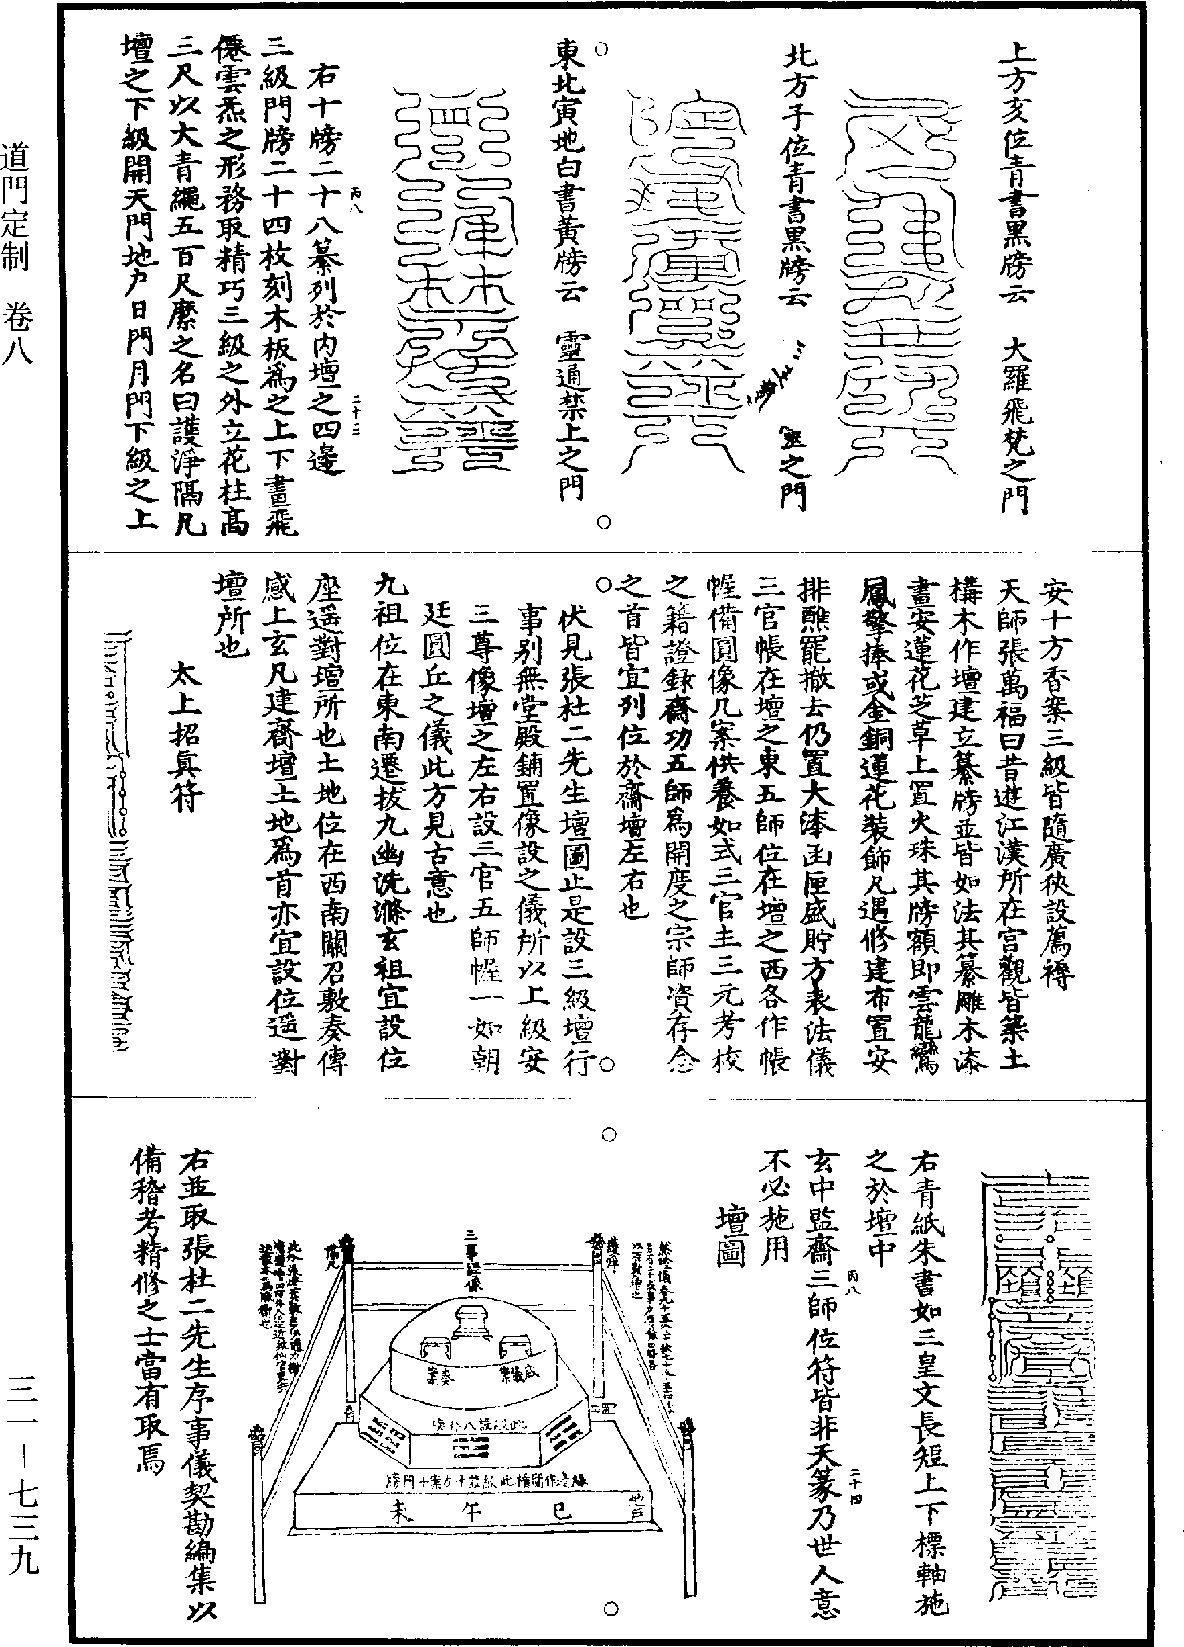 道門定制　卷八
上方亥位青書黑牓云　大羅飛梵之門
北方子位青書黑牓云
之門
東北寅地白書黃牓云　靈通禁上之門
右十牓二十八纂列於內壇之四邊
丙八
二十三
三級門牓二十四枚刻木板為之上下畫飛
僊雲炁之形務取精巧三級之外立花柱高
三尺以大青繩五百尺縻之名曰護淨隔凡
壇之下級開天門地戶日門月門下級之上
安十方香案三級皆隨廣狹設薦褥
天師張萬福曰昔遊江漢所在宮觀皆築土
構木作壇建立纂牓並皆如法其纂雕木漆
畫安蓮花芝草上置火珠其牓額即雲龍鸞
鳳擎捧或金銅蓮花裝飾凡遇修建布置安
排醮罷撤去仍置大漆函匣盛貯方表法儀
三官帳在壇之東五師位在壇之西各作帳
幄備圓像几案供養如式三官主三元考校
之籍證錄齋功五師為開度之宗師資存念
之首皆宜列位於齋壇左右也
伏見張杜二先生壇圖止是設三級壇行
事別無堂殿鋪置像設之儀所以上級安
三尊像壇之左右設三官五師幄一如朝
廷圓丘之儀此方見古意也
九祖位在東南遷拔九幽洗滌玄祖宜設位
座遥對壇所也土地位在西南關召敷奏傳
感上玄凡建齋壇土地為首亦宜設位遥對
壇所也
太上招真符
右青紙朱書如三皇文長短上下標軸施
之於壇中
丙八
二十四
玄中監齋三師位符皆非天篆乃世人意
不必施用
壇圖
三尊經像
奏案
未
午
巳
右並取張杜二先生序事儀契勘編集以
備稽考精修之士當有取焉
三一－七三九